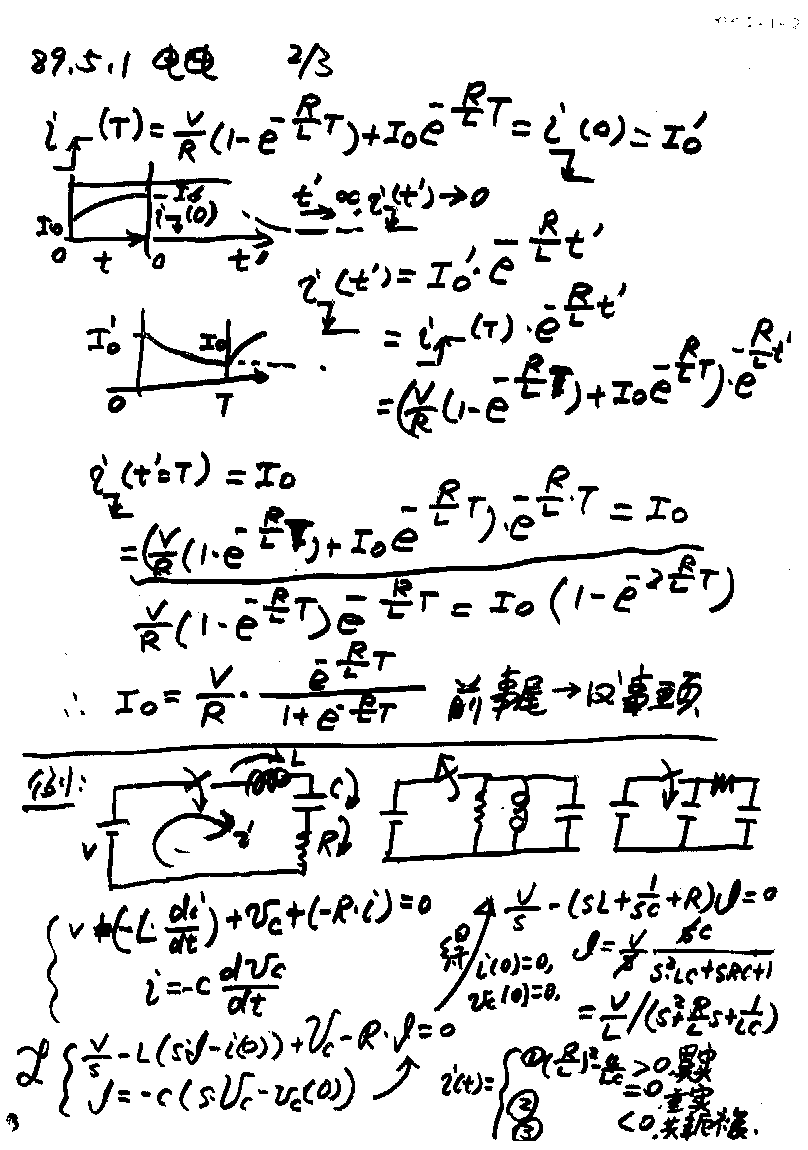 89.5.1 电电 2/3
i_↱(T) = V/R (1 - e^{-R/L T}) + I₀ e^{-R/L T} = i_↳(0) = I₀'
I₀ I₀' i_↳(0) 0 t 0 t'
t' → ∞ i_↳(t') → 0
i_↳(t') = I₀' · e^{-R/L t'}
= i_↱(T) · e^{-R/L t'}
I₀' I₀ 0 T
= (V/R (1 - e^{-R/L T}) + I₀ e^{-R/L T}) · e^{-R/L t'}
i_↳(t'=T) = I₀
= (V/R (1 - e^{-R/L T}) + I₀ e^{-R/L T}) · e^{-R/L · T} = I₀
V/R (1 - e^{-R/L T}) e^{-R/L T} = I₀ (1 - e^{-2 R/L T})
∴ I₀ = V/R · e^{-R/L T} / (1 + e^{-R/L T}) 前事尾→ 事頭
例1:
V i L C R
V + (-L · di/dt) + v_c + (-R · i) = 0
i = -C dv_c/dt
ℒ { V/s - L(sℐ - i(0)) + V_c - R · ℐ = 0
ℐ = -C (sV_c - v_c(0))
i(0)=0,
v_c(0)=0.
V/s - (sL + 1/sC + R)ℐ = 0
ℐ = V/s · sC / (s²LC + sRC + 1)
= V/L / (s² + R/L s + 1/LC)
i(t) = { ① (R/L)² - 4/LC > 0 異实
② = 0 重实
③ < 0 共轭